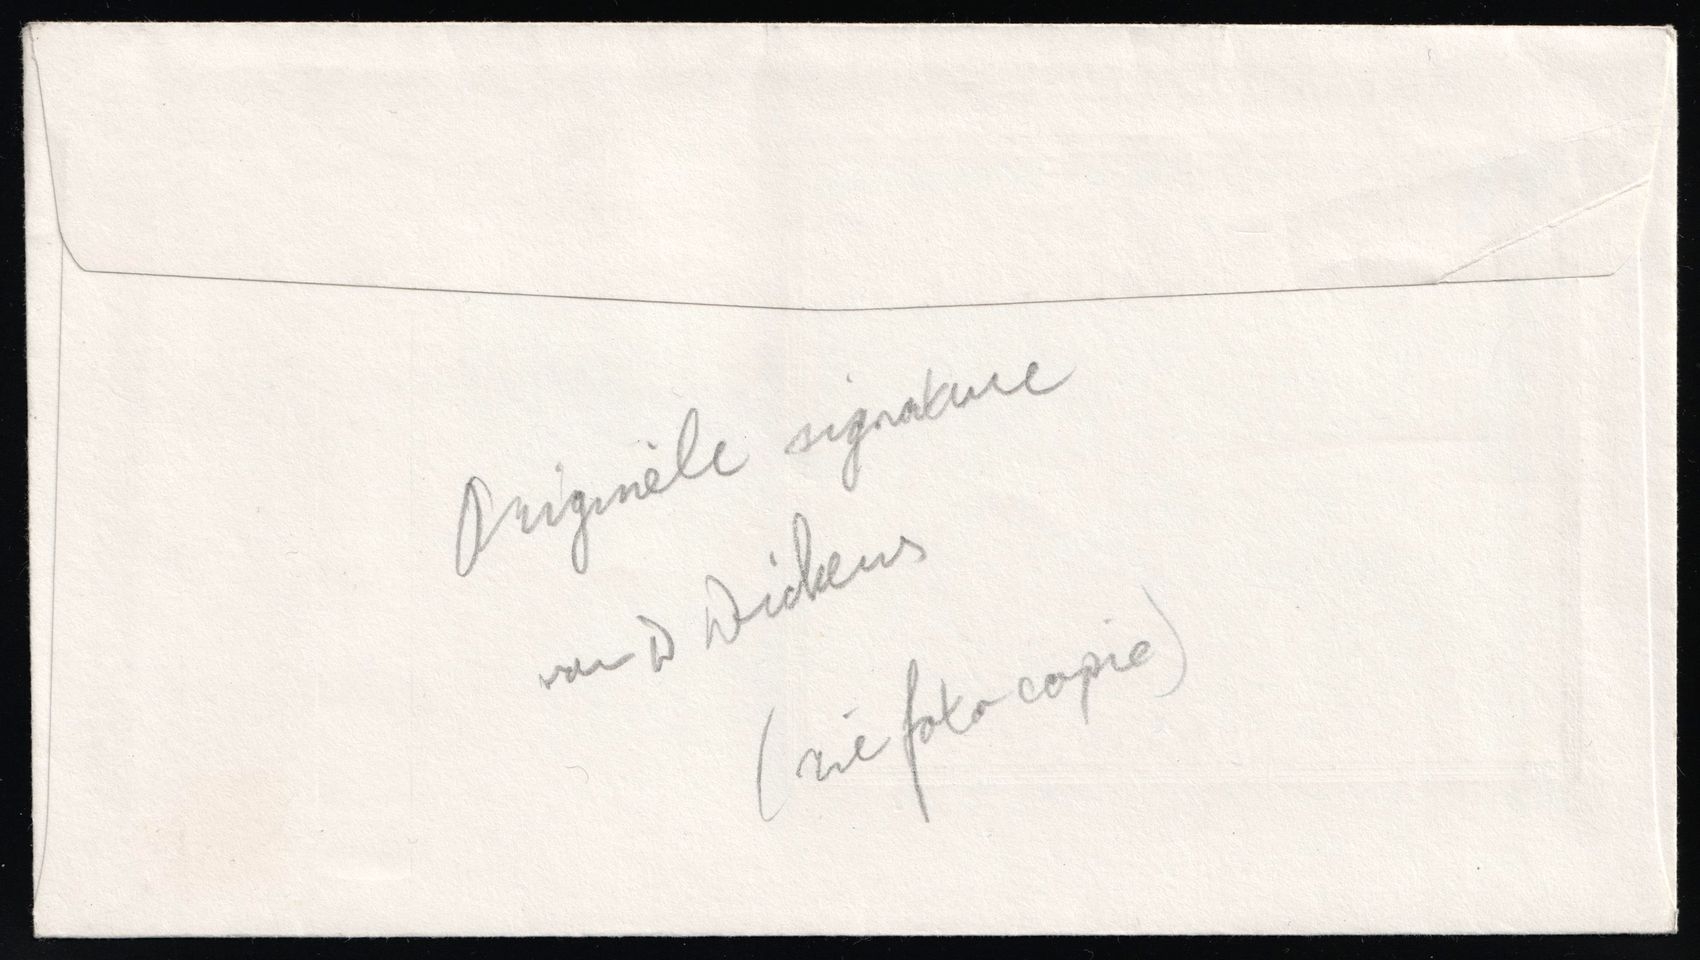 Originèle signature
van D Dickens
(nie foto copie)